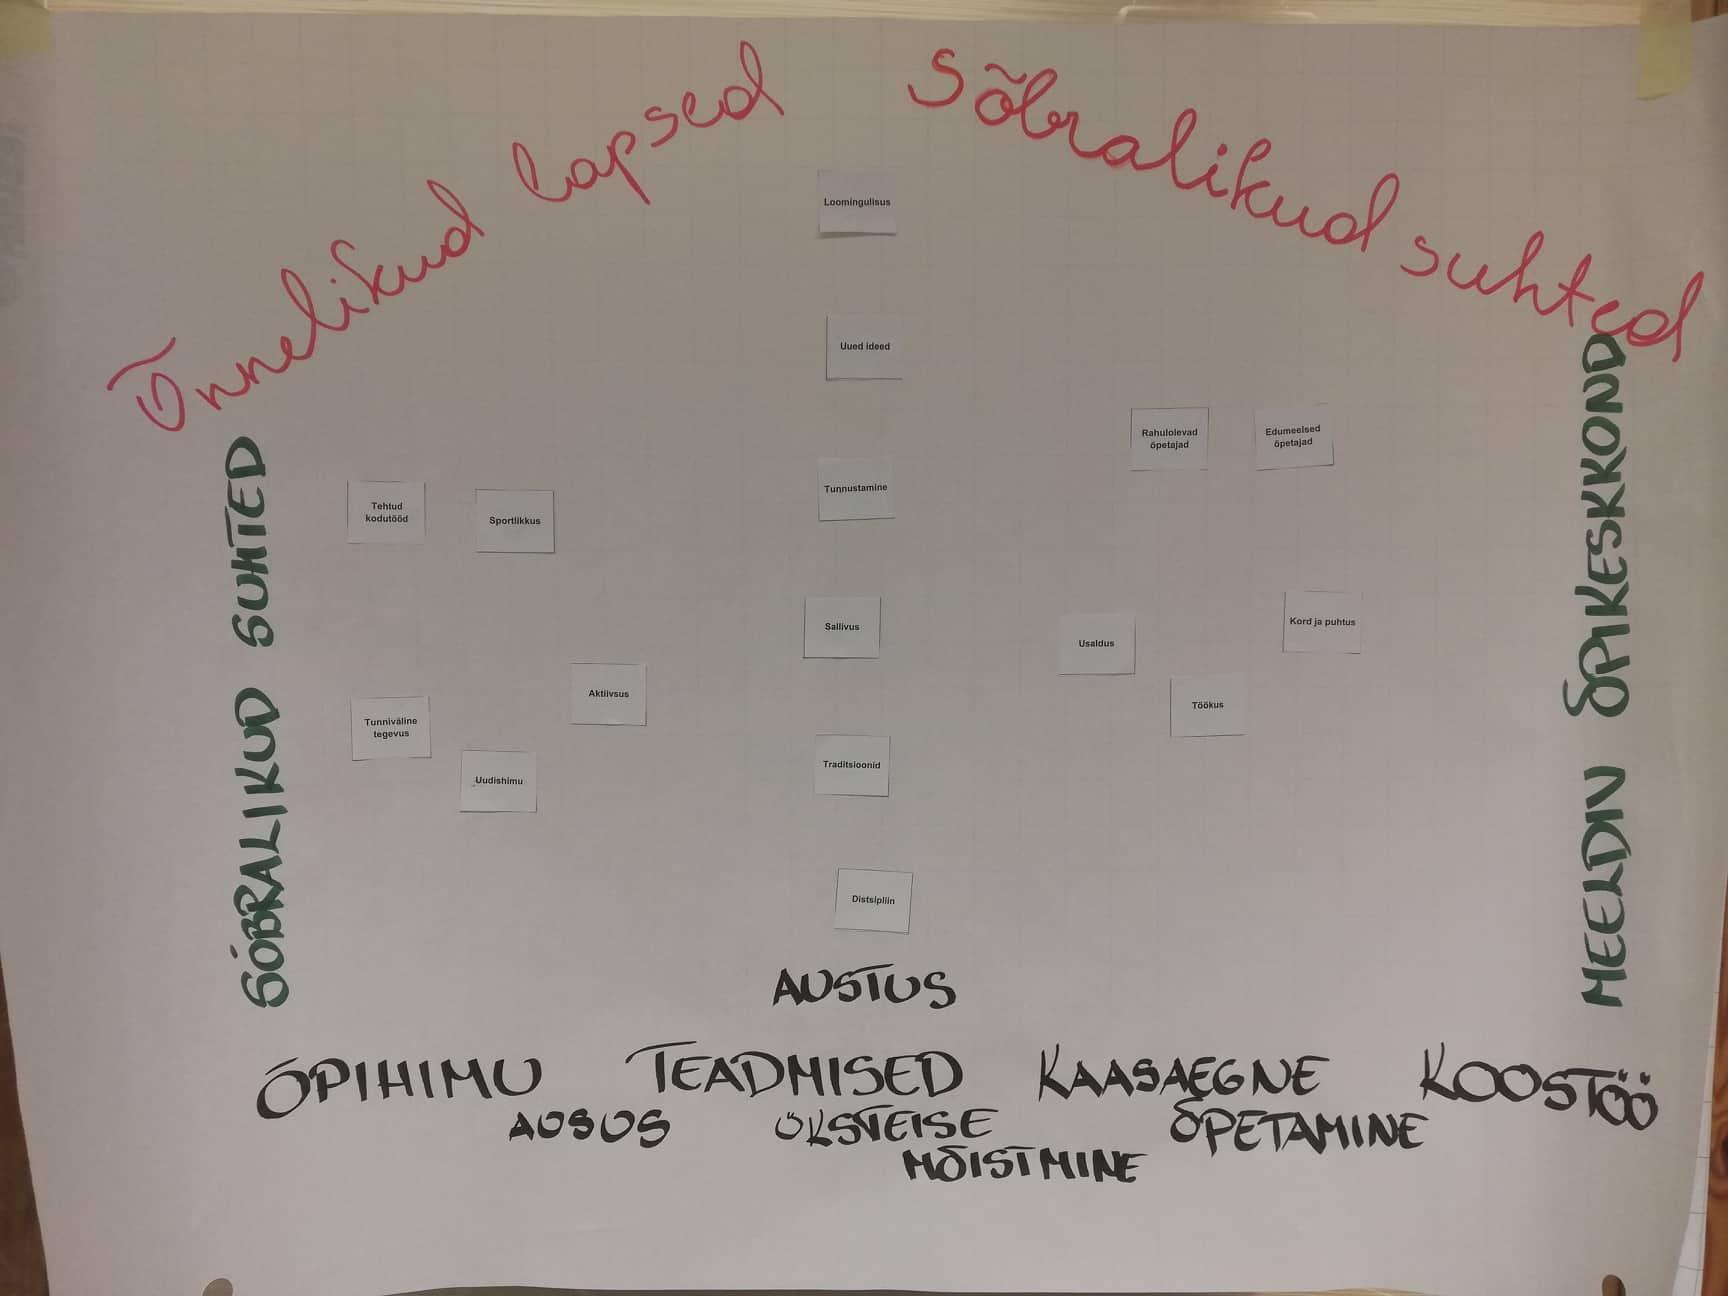 Õnnelikud lapsed
Sõbralikud suhted
SÕBRALIKUD SUHTED
MEELDIV ÕPIKESKKOND
Loomingulisus
Uued ideed
Rahulolevad
õpetajad
Edumeelsed
õpetajad
Tehtud
kodutööd
Sportlikkus
Tunnustamine
Sallivus
Usaldus
Kord ja puhtus
Aktiivsus
Töökus
Tunniväline
tegevus
Uudishimu
Traditsioonid
Distsipliin
AUSTUS
ÕPIHIMU TEADMISED KAASAEGNE KOOSTÖÖ
AUSUS ÜKSTEISE ÕPETAMINE
MÕISTMINE